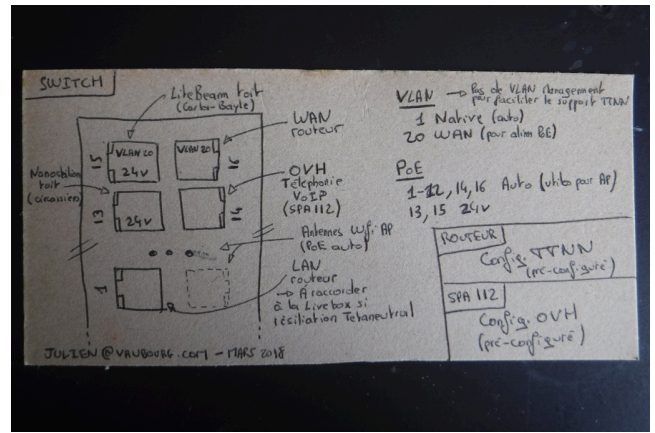 SWITCH
LiteBeam toit
(Carla-Bayle)
WAN
routeur
15
VLAN 20
24V
VLAN 20
16
Nanostation
toit
OVH
Téléphonie
VoIP
(SPA 112)
13
24V
14
Antennes Wifi AP
(PoE auto)
1
LAN
routeur
→ A raccorder
à la Livebox si
résiliation Tetaneutral
JULIEN@VAUBOURG.COM - MARS 2018
VLAN → Pas de VLAN Management
pour faciliter le support TTNN
1 Native (auto)
20 WAN (pour alim BE)
PoE
1-12, 14, 16 Auto (utiles pour AP)
13, 15 24V
ROUTEUR
Config. TTNN
(pré-configuré)
SPA 112
Config. OVH
(pré-configuré)